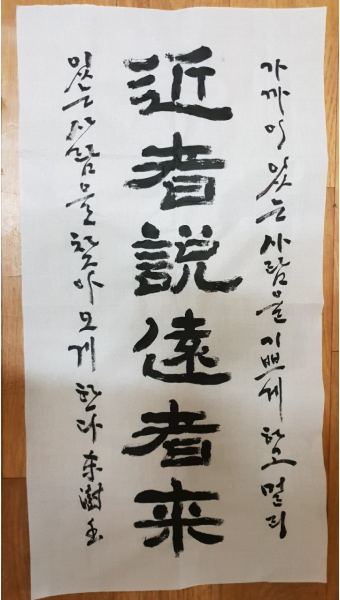 近者説遠者来
가까이 있는 사람을 기쁘게 하고 멀리
있는 사람을 찾아 오게 한다